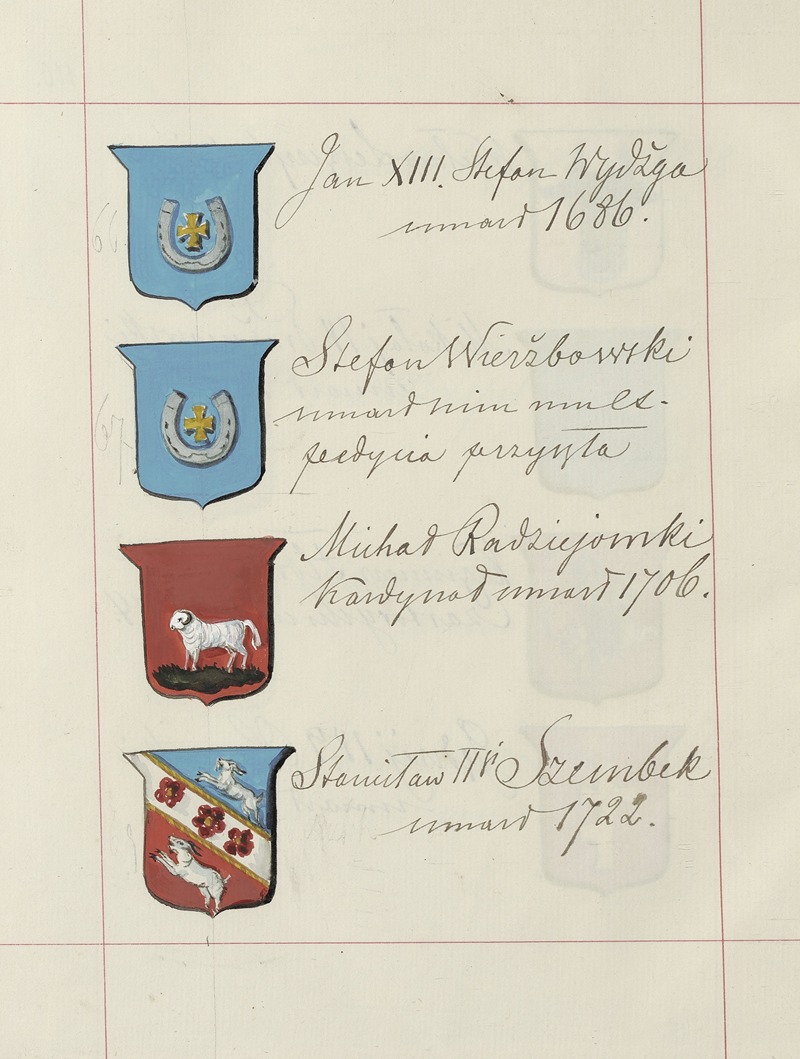 Jan XIII. Stefan Wydżga
umarł 1686.
Stefan Wierżbowski
umarł nim mu eks-
pedycia przyszła
Michał Radziejowski
Kardynał umarł 1706.
Stanisław Szembek
umarł 1722.